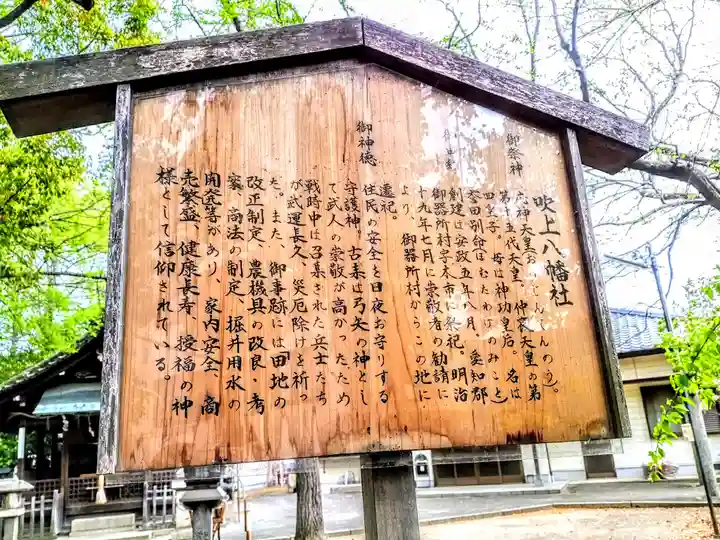 吹上八幡社
御祭神
応神天皇(おうじんてんのう)。
第十五代天皇。仲哀天皇の第
四皇子。母は神功皇后。名は
誉田別命(ほむたわけのみこと)
創建は安政五年八月、愛知郡
御器所村字木市に祭祀。明治
十九年七月に崇敬者の勧請に
より、御器所村からこの地に
遷祀。
御神徳
住民の安全を日夜お守りする
守護神。古来は弓矢の神とし
て武人の崇敬が高かったため
戦時中は召集された兵士たち
が武運長久、災厄除けを祈っ
た。また、御事跡には田地の
改正制定、農機具の改良・考
案、商法の制定、堀井用水の
開発等があり、家内安全、商
売繁盛、健康長寿、授福の神
様として信仰されている。